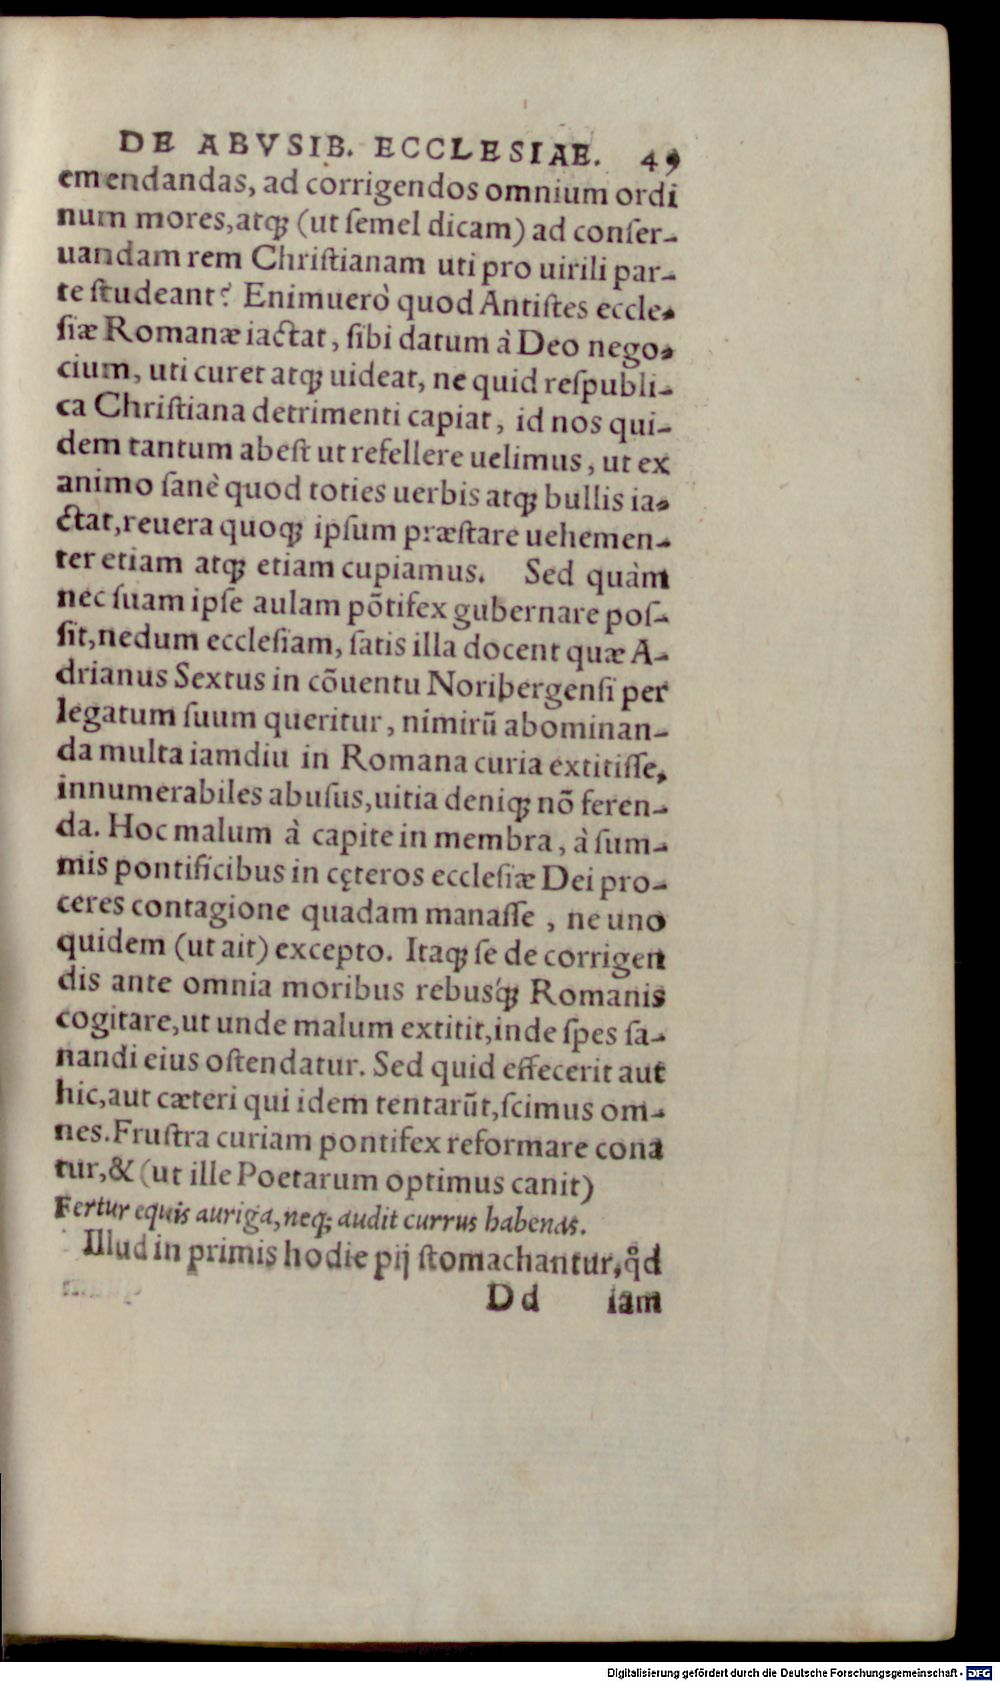 DE ABVSIB. ECCLESIAE. 49
emendandas, ad corrigendos omnium ordi
num mores, atq; (ut ſemel dicam) ad conſer-
uandam rem Chriſtianam uti pro uirili par-
te ſtudeant? Enimuerò quod Antiſtes eccle-
ſiæ Romanæ iactat, ſibi datum à Deo nego-
cium, uti curet atq; uideat, ne quid reſpubli-
ca Chriſtiana detrimenti capiat, id nos qui-
dem tantum abeſt ut refellere uelimus, ut ex
animo ſanè quod toties uerbis atq; bullis ia-
ctat, reuera quoq; ipſum præſtare uehemen-
ter etiam atq; etiam cupiamus. Sed quàm
nec ſuam ipſe aulam põtifex gubernare poſ-
ſit, nedum eccleſiam, ſatis illa docent quæ A-
drianus Sextus in cõuentu Noribergenſi per
legatum ſuum queritur, nimirũ abominan-
da multa iamdiu in Romana curia extitiſſe,
innumerabiles abuſus, uitia deniq; nõ feren-
da. Hoc malum à capite in membra, à ſum-
mis pontificibus in cęteros eccleſiæ Dei pro-
ceres contagione quadam manaſſe, ne uno
quidem (ut ait) excepto. Itaq; ſe de corrigen
dis ante omnia moribus rebusq́; Romanis
cogitare, ut unde malum extitit, inde ſpes ſa-
nandi eius oſtendatur. Sed quid effecerit aut
hic, aut cæteri qui idem tentarũt, ſcimus om-
nes. Fruſtra curiam pontifex reformare cona
tur, & (ut ille Poetarum optimus canit)
Fertur equis auriga, neq; audit currus habenas.
Illud in primis hodie pij ſtomachantur, qd̊
Dd iam
Digitalisierung gefördert durch die Deutsche Forschungsgemeinschaft - DFG